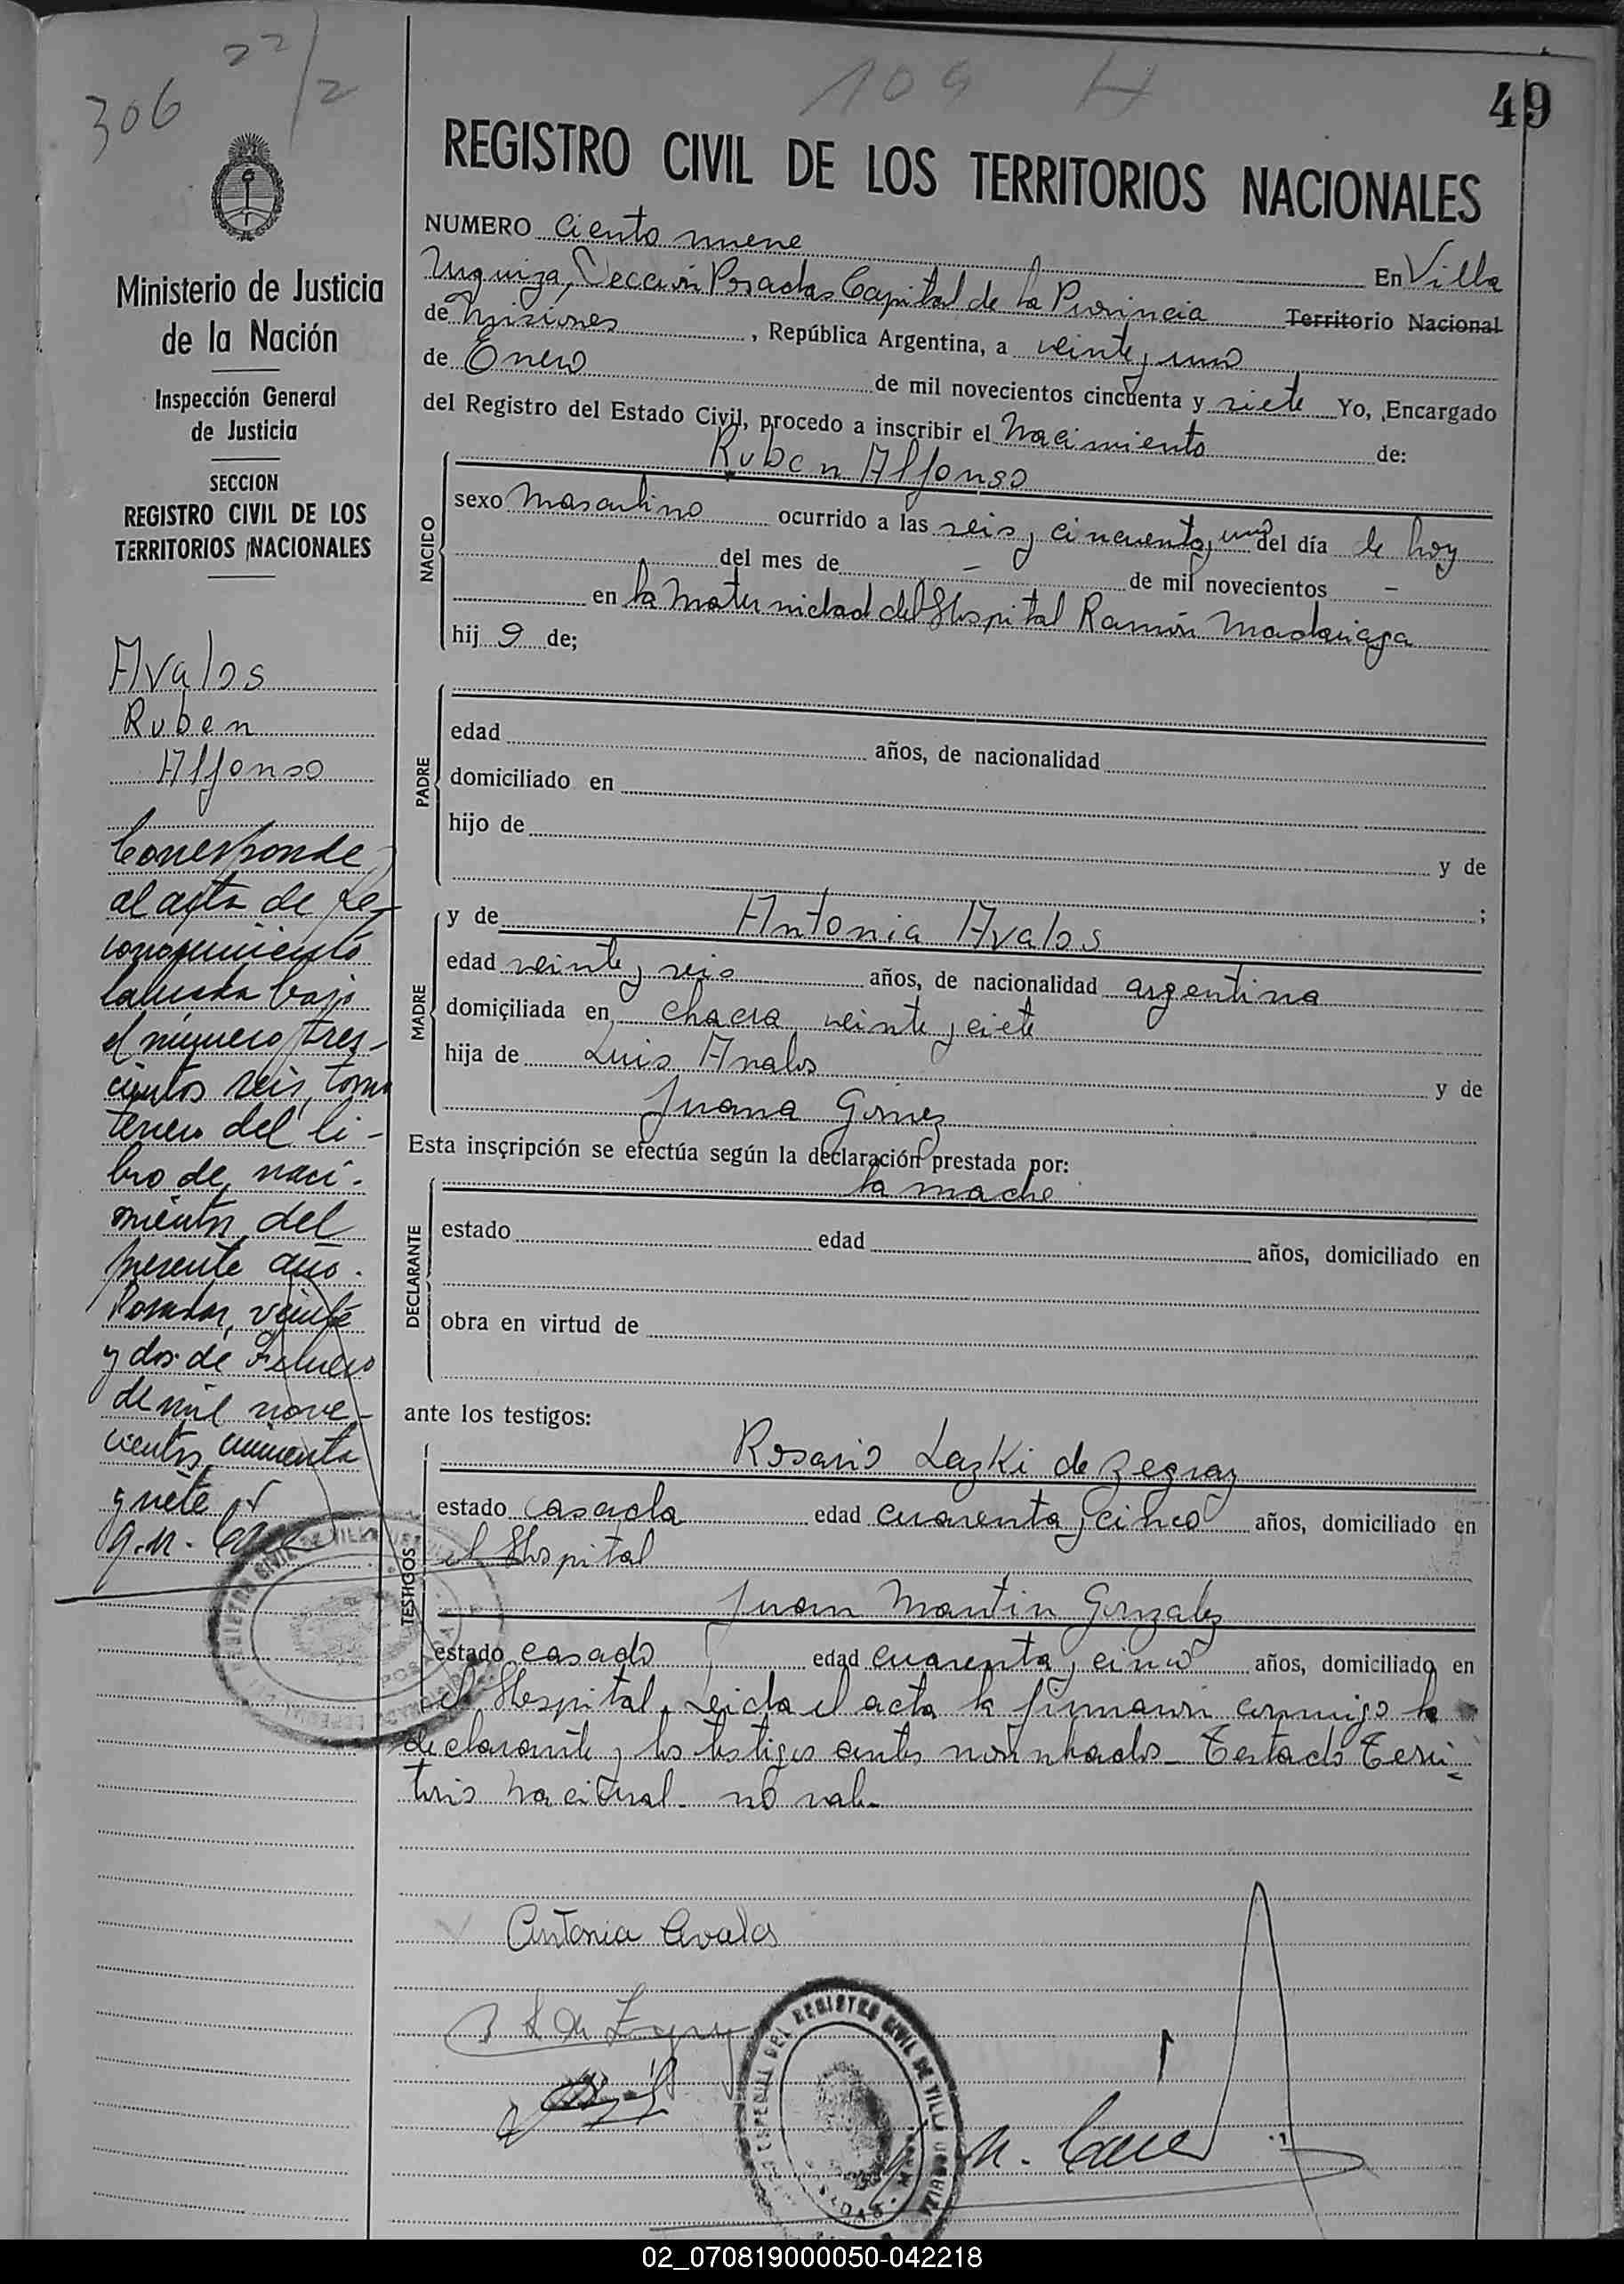 306
22/2
109 H
49
Ministerio de Justicia
de la Nación
Inspección General
de Justicia
SECCION
REGISTRO CIVIL DE LOS
TERRITORIOS NACIONALES
Avalos
Ruben
Alfonso
Corresponde
al acta de re-
conocimiento
labrada bajo
el número tres-
cientos seis, tomo
tercero del li-
bro de naci-
mientos del
presente año.
Posadas, veinte
y dos de Febrero
de mil nove-
cientos cincuenta
y siete
REGISTRO CIVIL DE LOS TERRITORIOS NACIONALES
NUMERO Ciento nueve En Villa
Urquiza, Sección Posadas Capital de la Provincia Territorio Nacional
de Misiones, República Argentina, a veinte y uno
de Enero de mil novecientos cincuenta y siete Yo, Encargado
del Registro del Estado Civil, procedo a inscribir el Nacimiento de:
Ruben Alfonso
NACIDO
sexo Masculino ocurrido a las seis y cincuenta y uno del día de hoy
del mes de — de mil novecientos —
en la Maternidad del Hospital Ramón Madariaga
hij o de;
PADRE
edad años, de nacionalidad
domiciliado en
hijo de y de
;
MADRE
y de Antonia Avalos
edad veinte y seis años, de nacionalidad argentina
domiciliada en chacra veinte y siete
hija de Luis Avalos y de
Juana Gómez
Esta inscripción se efectúa según la declaración prestada por:
la madre
DECLARANTE
estado edad años, domiciliado en
obra en virtud de
ante los testigos:
TESTIGOS
Rosario Lazki de Zegray
estado casada edad cuarenta y cinco años, domiciliado en
el Hospital
Juan Martin Gonzalez
estado casado edad cuarenta y cinco años, domiciliado en
el Hospital. Leida el acta la firmaron conmigo la
declarante y los testigos antes nombrados - Testado Terri-
torio Nacional - no vale -
Antonia Avalos
ESPECIAL DEL REGISTRO CIVIL DE VILLA URQUIZA
02_070819000050-042218